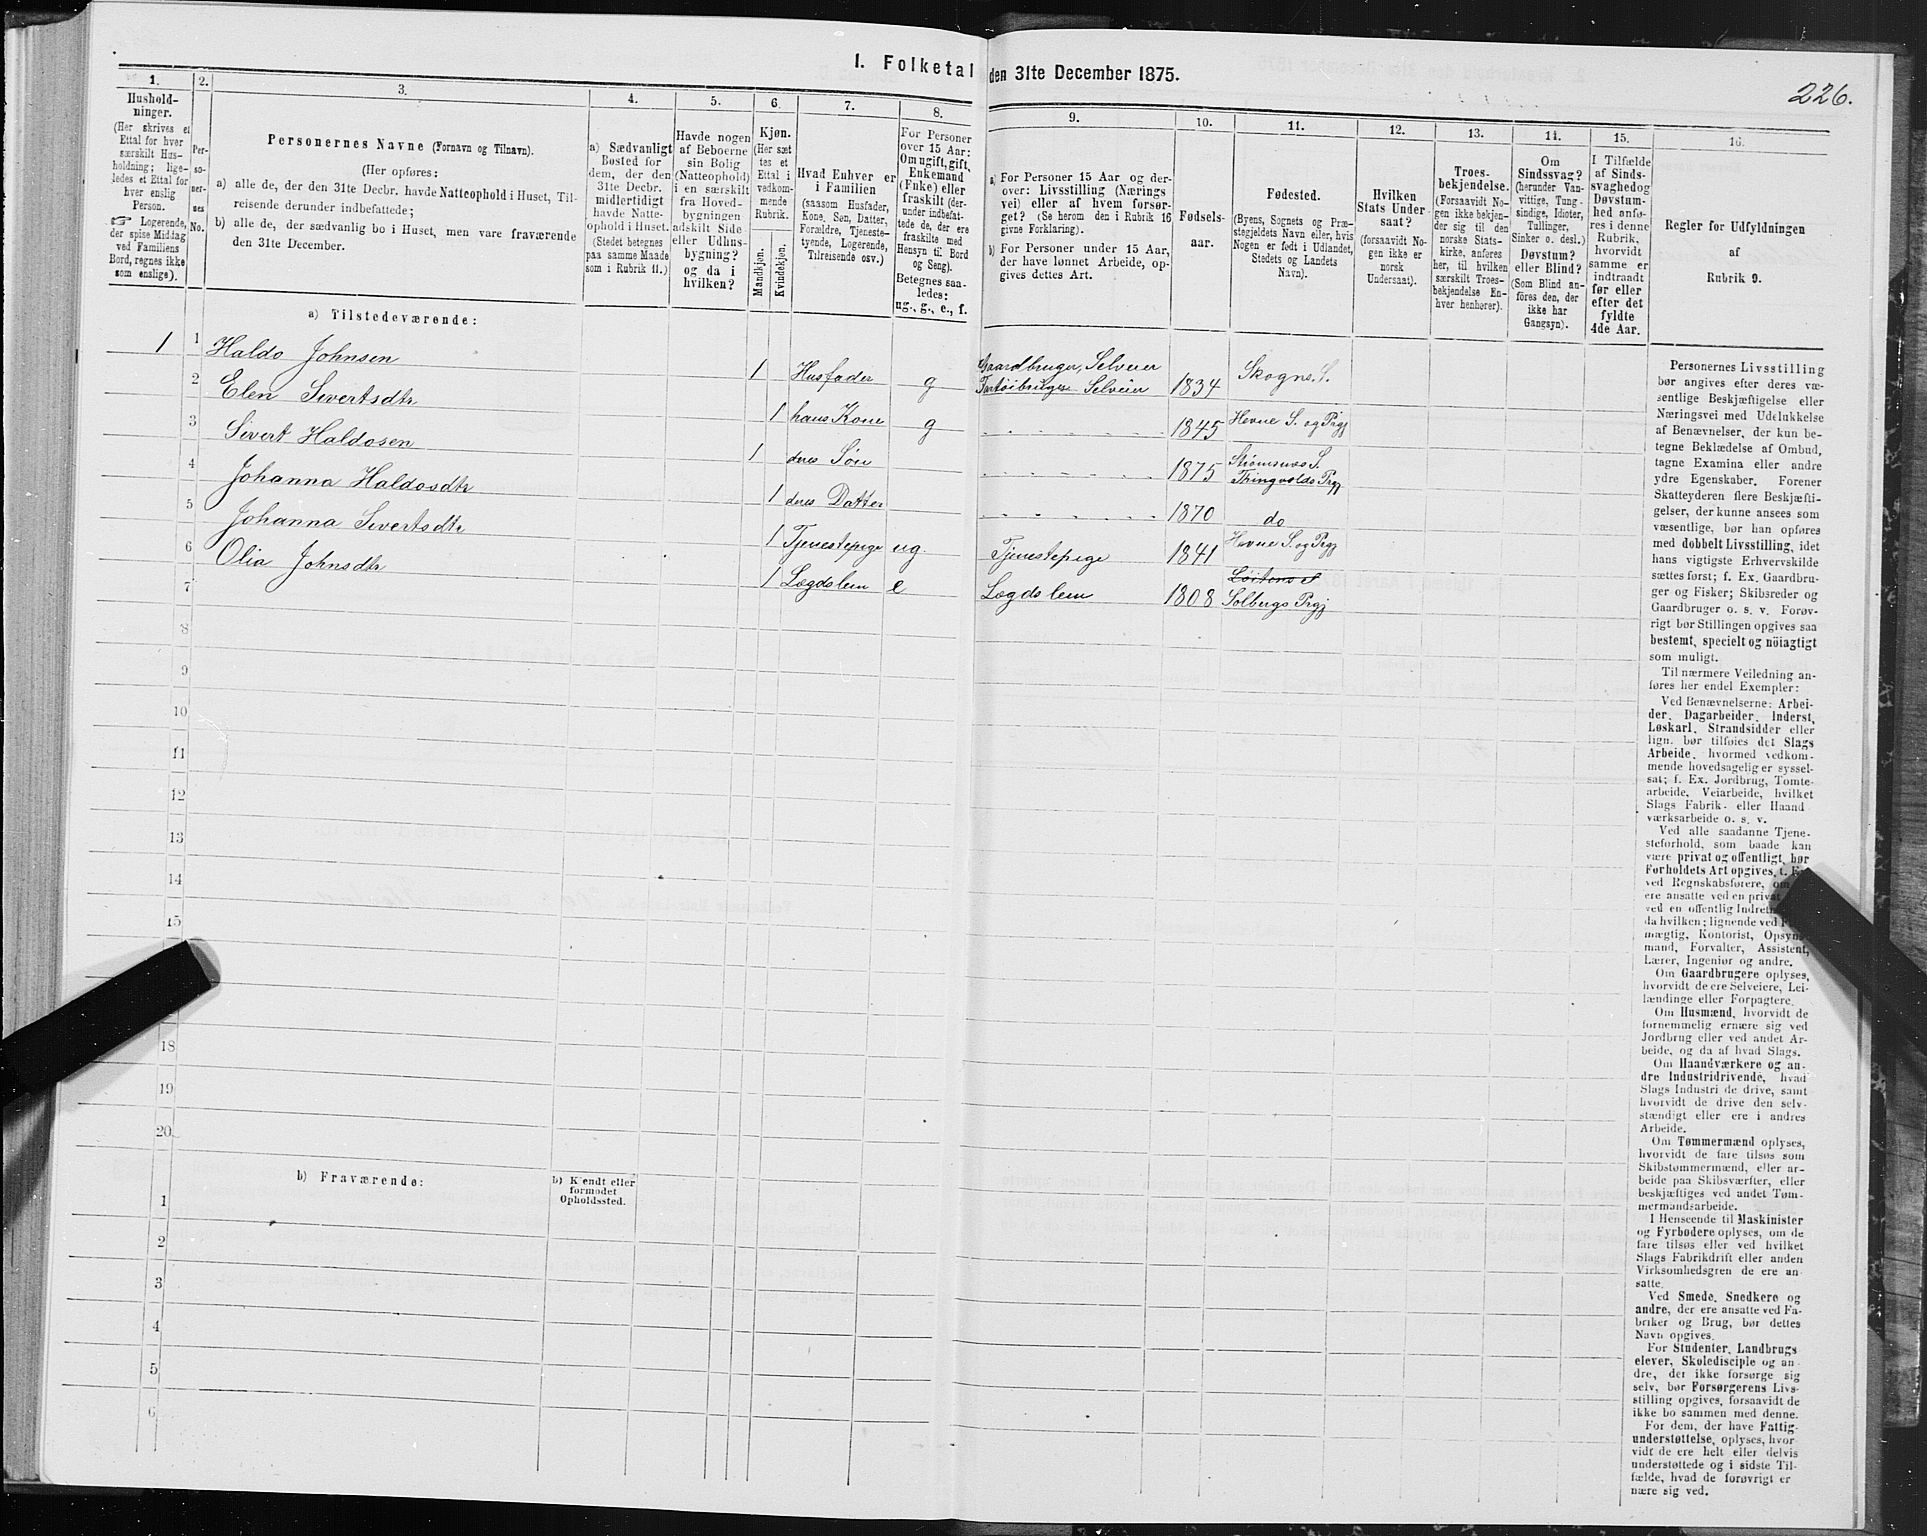 I. Folketal den 31te December 1875.
226.
1.
Hushold-
ninger.
(Her skrives et
Ettal for hver
særskilt Hus-
holdning; lige-
ledes et Ettal for
hver enslig
Person.
Logerende,
der spise Middag
ved Familiens
Bord, regnes ikke
som enslige).
2.
Per-
so-
ner-
nes
No.
3.
Personernes Navne (Fornavn og Tilnavn).
(Her opføres:
a) alle de, der den 31te Decbr. havde Natteophold i Huset, Til-
reisende derunder indbefattede;
b) alle de, der sædvanlig bo i Huset, men vare fraværende
den 31te December.
4.
a) Sædvanligt
Bosted for
dem, der den
31te Decbr.
midlertidigt
havde Natte-
ophold i Huset.
(Stedet betegnes
paa samme Maade
som i Rubrik 11.)
5.
Havde nogen
af Beboerne
sin Bolig
(Natteophold)
i en særskilt
fra Hoved-
bygningen
adskilt Side-
eller Udhus-
bygning?
og da i
hvilken?
6.
Kjøn.
(Her sæt
tes et
Ettal i
vedkom-
mende
Rubrik.
Mandkjøn.
Kvindekjøn.
7.
Hvad Enhver er
i Familien
(saasom Husfader,
Kone, Søn, Datter,
Forældre, Tjeneste-
tyende, Logerende,
Tilreisende osv.)
8.
For Personer
over 15 Aar:
Om ugift, gift,
Enkemand
(Enke) eller
fraskilt (der-
under indbefat-
tede de, der ere
fraskilte med
Hensyn til Bord
og Seng).
Betegnes saa-
ledes:
ug., g., e., f.
9.
a) For Personer 15 Aar og der-
over: Livsstilling (Nærings
vei) eller af hvem forsør-
get? (Se herom den i Rubrik 16
givne Forklaring).
b) For Personer under 15 Aar,
der have lønnet Arbeide, op-
gives dettes Art.
10.
Fødsels-
aar.
11.
Fødested.
(Byens, Sognets og Præ-
stegjeldets Navn eller, hvis
Nogen er født i Udlandet,
Stedets og Landets
Navn).
12.
Hvilken
Stats Under-
saat?
(forsaavidt No-
gen ikke er
norsk
Undersaat).
13.
Troes-
bekjendelse.
(Forsaavidt No-
gen ikke bekjen-
der sig til den
norske Stats-
kirke, anføres
her, til hvilken
særskilt Troes-
bekjendelse En-
hver henhører).
14.
Om
Sindssvag?
(herunder Van-
vittige, Tung-
sindige, Idioter,
Tullinger,
Sinker o. desl.)
Døvstum?
eller Blind?
(Som Blind an-
føres den, der
ikke har
Gangsyn).
15.
I Tilfælde
af Sinds-
svaghed og
Døvstum-
hed anfø-
res i denne
Rubrik,
hvorvidt
samme er
indtraadt
før eller
efter det
fyldte
4de Aar.
16.
Regler for Udfyldningen
af
Rubrik 9.
a) Tilstedeværende:
1 1 Haldo Johnsen 1 Husfader g Gaardbruger, Selveier
Fartøibruger Selveier 1834 Skogns S.
2 Elen Sivertsdtr 1 hans Kone g 1845 Hevne S. og Prgj
3 Sivert Haldosen 1 deres Søn 1875 Strømsnes S.
Thingvolds Prgj.
4 Johanna Haldosdtr 1 deres Datter 1870 do
5 Johanna Sivertsdtr 1 Tjenestepige ug. Tjenestepige 1841 Hevne S. og Prgj
6 Olia Johnsdtr 1 Lægdslem e Lægdslem 1808
Solbergs Prgj
7
8
9
10
11
12
13
14
15
18
19
20
b) Fraværende:
b) Kjendt eller
formodet
Opholdssted.
1
2
3
4
5
6
Personernes Livsstilling
bør angives efter deres væ-
sentlige Beskjæftigelse eller
Næringsvei med Udelukkelse
af Benævnelser, der kun be-
tegne Beklædelse af Ombud,
tagne Examina eller andre
ydre Egenskaber. Forener
Skatteyderen flere Beskjæfti-
gelser, der kunne ansees som
væsentlige, bør han opføres
med dobbelt Livsstilling, idet
hans vigtigste Erhvervskilde
sættes først; f. Ex. Gaardbru-
ger og Fisker; Skibsreder og
Gaardbruger o. s. v. Forøv-
rigt bør Stillingen opgives saa
bestemt, specielt og nöiagtigt
som muligt.
Til nærmere Veiledning an-
føres her endel Exempler:
Ved Benævnelserne: Arbei-
der, Dagarbeider, Inderst,
Løskarl, Strandsidder eller
lign. bør tilføies det Slags
Arbeide, hvormed vedkom-
mende hovedsagelig er syssel-
sat; f. Ex. Jordbrug, Tomte-
arbeide, Veiarbeide, hvilket
Slags Fabrik- eller Haand
værksarbeide o. s. v.
Ved alle saadanne Tjene-
steforhold, som baade kan
være privat og offentligt, bør
Forholdets Art opgives,
ved Regnskabsførere,
ere ansatte ved en privat
ved en offentlig
da hvilken; lignende ved
mægtig, Kontorist,
mand, Forvalter, Assistent,
Lærer, Ingeniør og andre.
Om Gaardbrugere oplyses,
hvorvidt de ere Selveiere, Lei-
lændinge eller Forpagtere.
Om Husmænd, hvorvidt de
fornemmelig ernære sig ved
Jordbrug eller ved andet Ar-
beide, og da af hvad Slags.
Om Haandværkere og an-
dre Industridrivende, hvad
Slags Industri de drive, samt
hvorvidt de drive den selv-
stændigt eller ere i andres
Arbeide.
Om Tømmermænd oplyses,
hvorvidt de fare tilsøs som
Skibstømmermænd, eller ar-
beide paa Skibsværfter, eller
beskjæftiges ved andet Tøm-
mermandsarbeide.
I Henseende til Maskinister
og Fyrbødere oplyses, om de
fare tilsøs eller ved hvilket
Slags Fabrikdrift eller anden
Virksomhedsgren de ere an-
satte.
Ved Smede, Snedkere og
andre, der ere ansatte ved Fa-
briker og Brug, bør dettes
Navn opgives.
For Studenter, Landbrugs
elever, Skoledisciple og an-
dre, der ikke forsørge sig
selv, bør Forsørgerens Livs-
stilling opgives, forsaavidt de
ikke bo sammen med denne.
For dem, der have Fattig-
understøttelse, oplyses, hvor-
vidt de ere helt eller delvis
understøttede og i sidste Til-
fælde, hvad de forøvrigt er
nære sig ved.